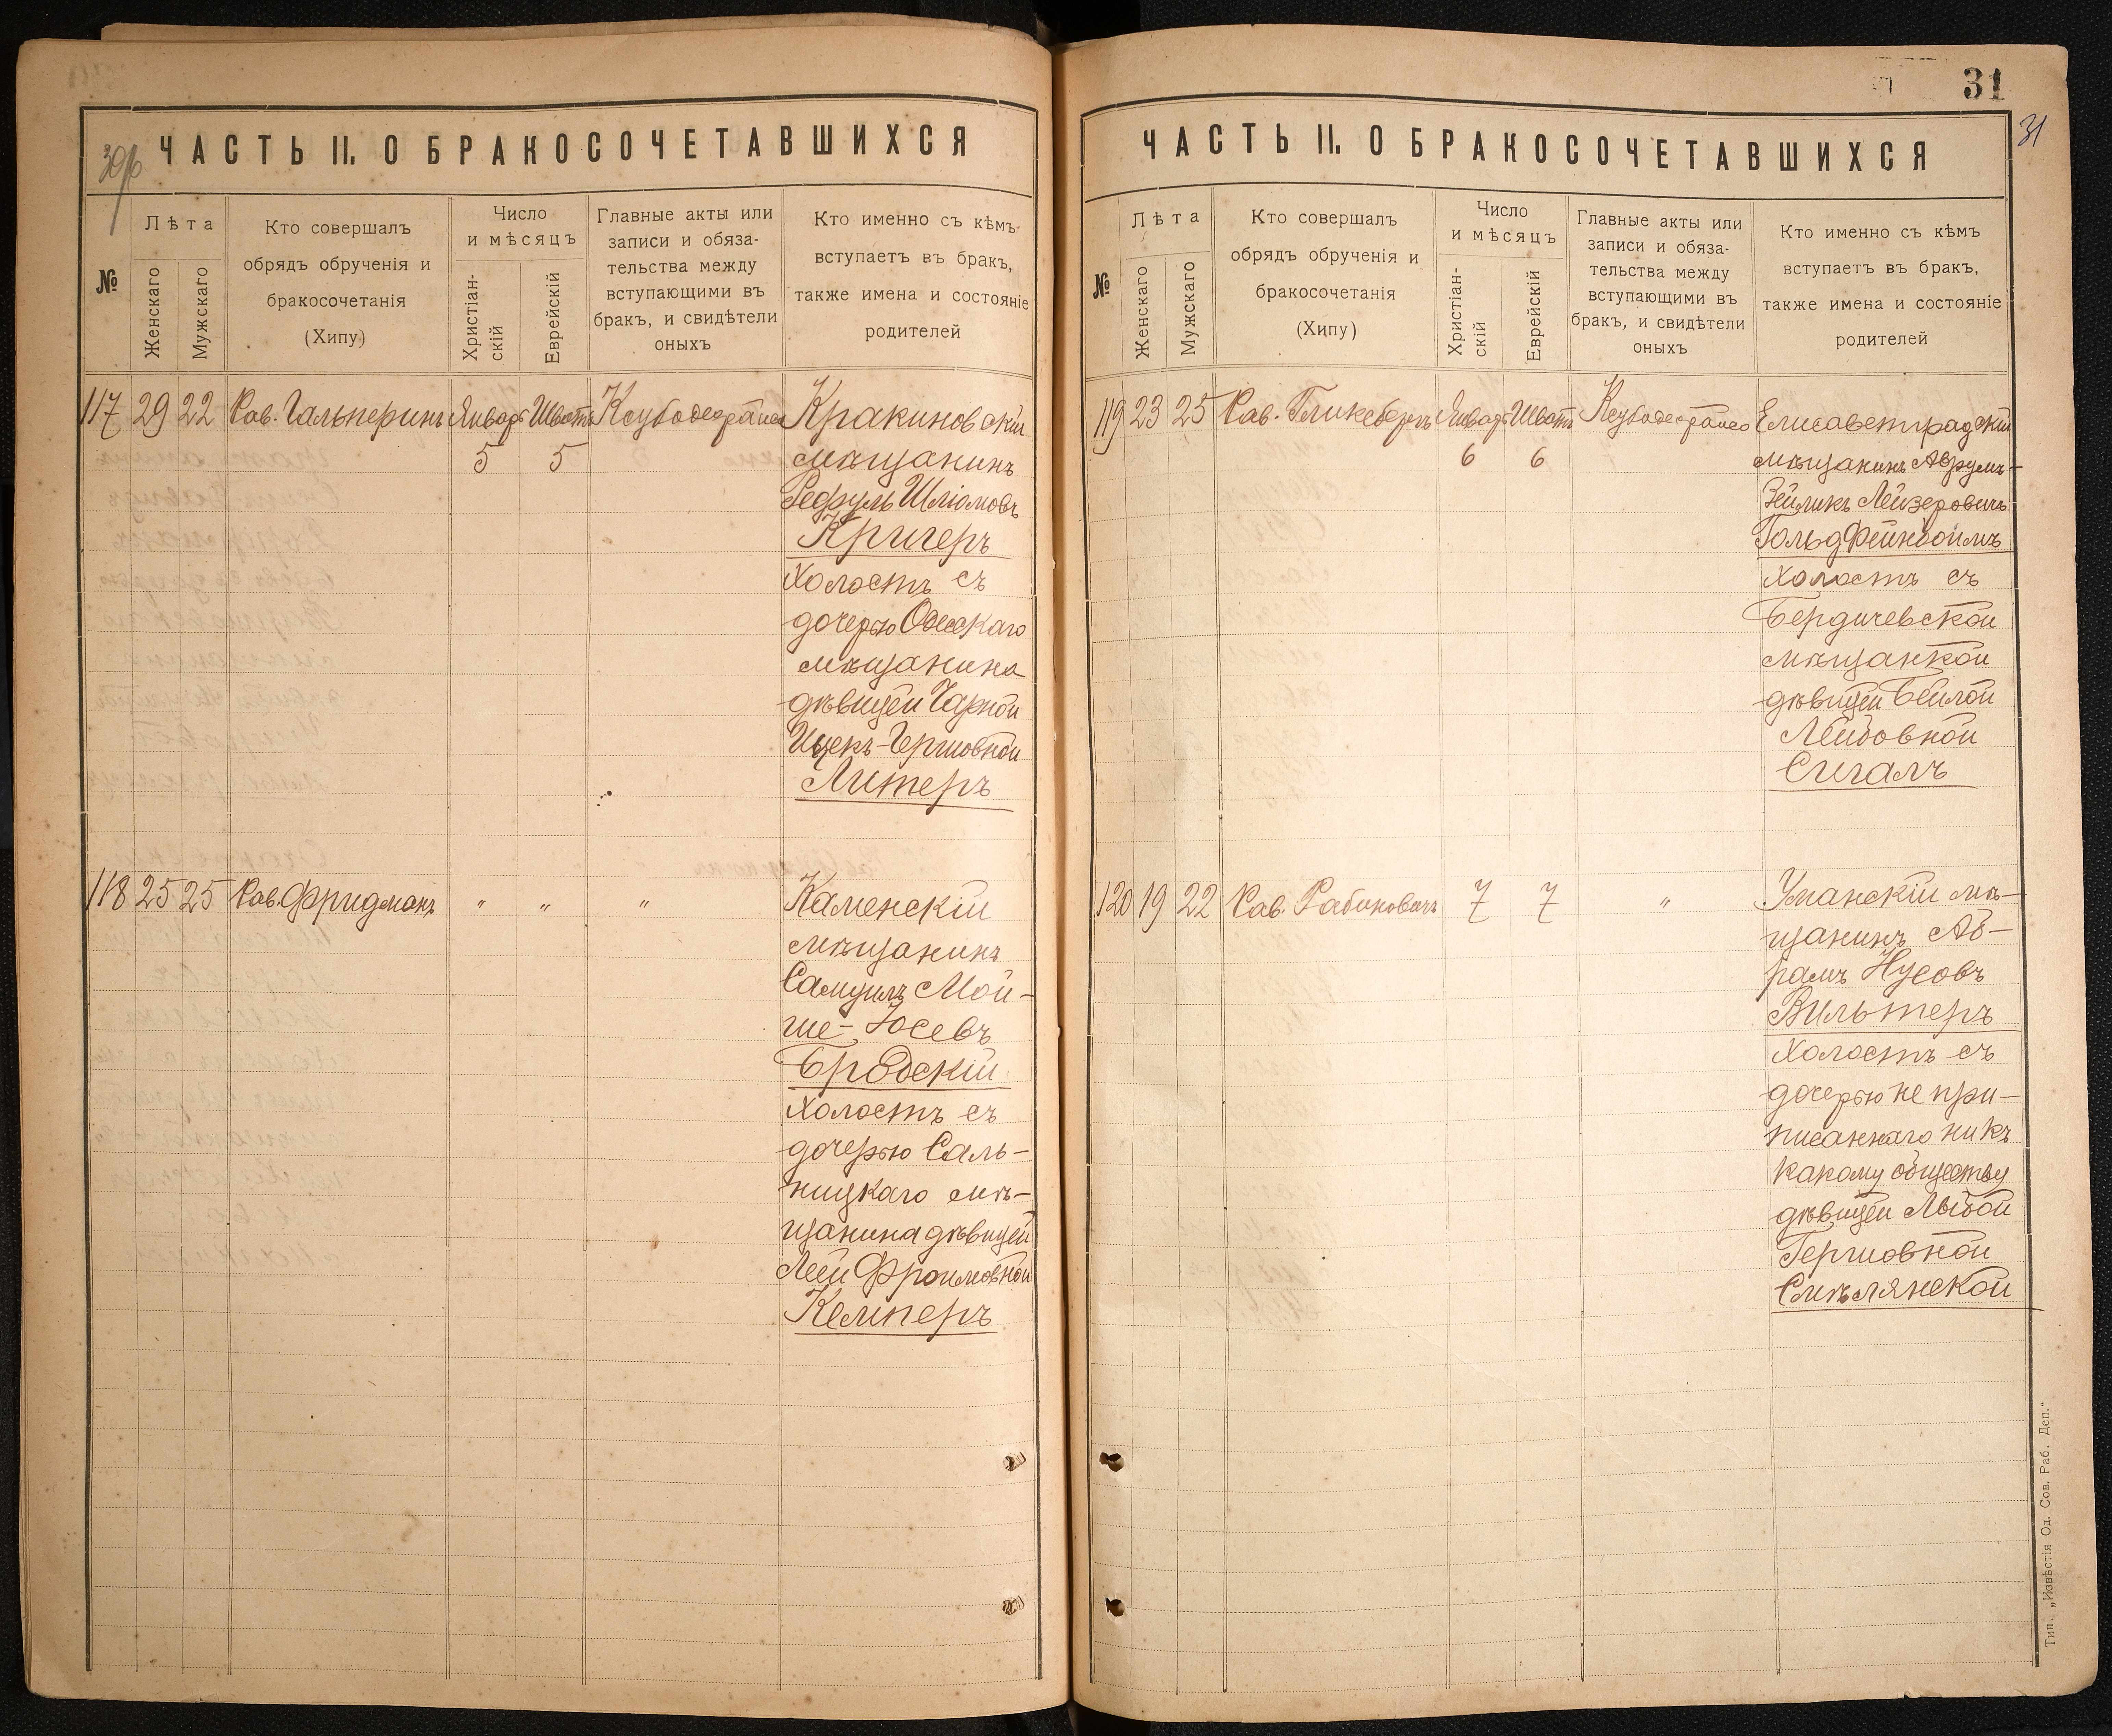 30об
ЧАСТЬ II. О БРАКОСОЧЕТАВШИХСЯ
№
Лѣта
Женскаго
Мужскаго
Кто совершалъ
обрядъ обрученія и
бракосочетанія
(Хипу)
Число
и мѣсяцъ
Христіан-
скій
Еврейскій
Главные акты или
записи и обяза-
тельства между
вступающими въ
бракъ, и свидѣтели
оныхъ
Кто именно съ кѣмъ
вступаетъ въ бракъ,
также имена и состояніе
родителей
117 29 22 Рав. Гальперинъ Январь 5 Шватъ 5
Кракиновскій
мѣщанинъ
Рефуль Шліомовъ
Кригеръ
холостъ съ
дочерью Одесскаго
мѣщанина
дѣвицей Чарной
Ицекъ-Гершовной
Литеръ
118 25 25 Рав. Фридманъ " " "
Каменскій
мѣщанинъ
Самуилъ Мой-
ше-Іосевъ
Бродскій
холостъ съ
дочерью Саль-
ницкаго мѣ-
щанина дѣвицей
Леей Фроимовной
Кемперъ
31
31
ЧАСТЬ II. О БРАКОСОЧЕТАВШИХСЯ
№
Лѣта
Женскаго
Мужскаго
Кто совершалъ
обрядъ обрученія и
бракосочетанія
(Хипу)
Число
и мѣсяцъ
Христіан-
скій
Еврейскій
Главные акты или
записи и обяза-
тельства между
вступающими въ
бракъ, и свидѣтели
оныхъ
Кто именно съ кѣмъ
вступаетъ въ бракъ,
также имена и состояніе
родителей
119 23 25 Рав. Гликсбергъ Январь 6 Шватъ 6
Елисаветградскій
мѣщанинъ Аврумъ-
Зейликъ Лейзеровичъ
Гольдфейнбоймъ
холостъ съ
Бердичевской
мѣщанкой
дѣвицей Бейлой
Лейбовной
Сигалъ
120 19 22 Рав. Рабиновичъ 7 7 "
Уманскій мѣ-
щанинъ Аб-
рамъ Нусовъ
Вильтеръ
холостъ съ
дочерью не при-
писаннаго ни къ
какому обществу
дѣвицей Лыбой
Гершовной
Смѣлянской
Тип. „Извѣстія Од. Сов. Раб. Деп."